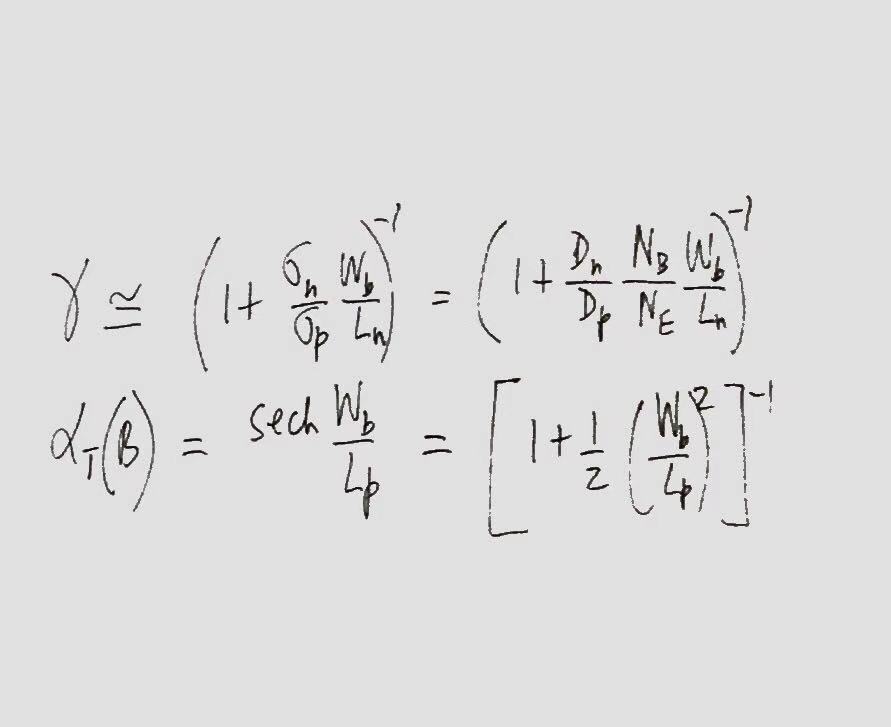 γ ≅ (1 + σn/σp Wb/Ln)^-1 = (1 + Dn/Dp NB/NE Wb/Ln)^-1
αT(B) = sech Wb/Lp = [1 + 1/2 (Wb/Lp)^2]^-1